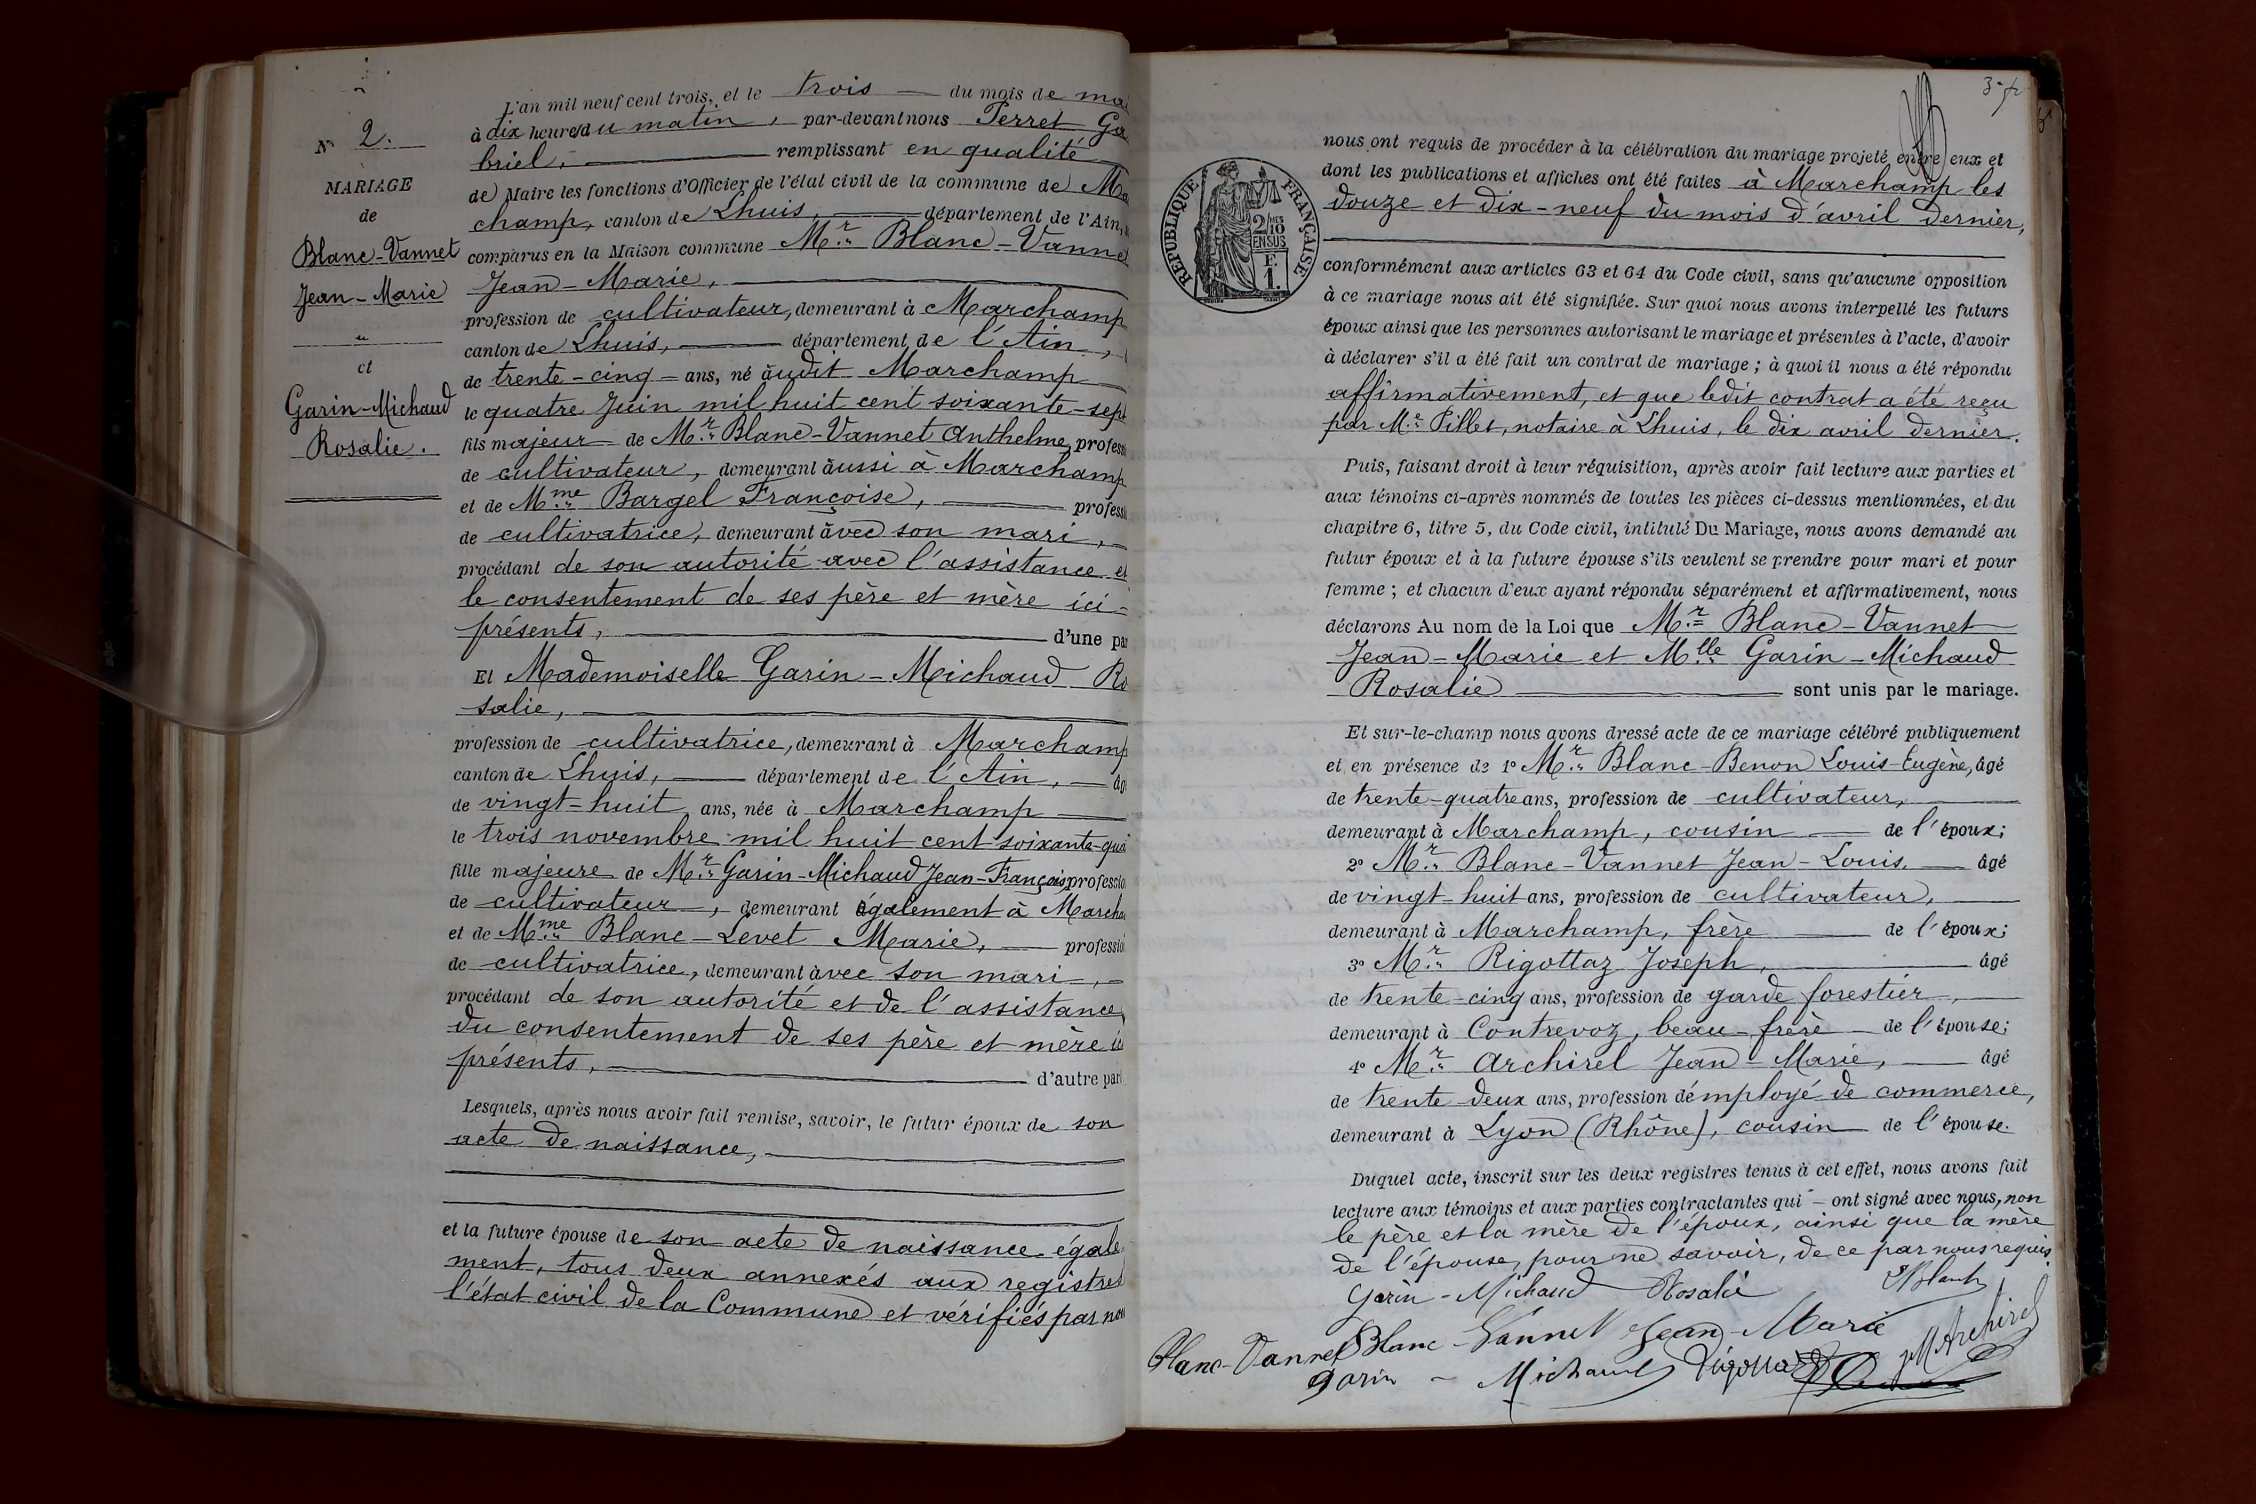 L'an mil neuf cent trois, et le trois — du mois de mai
à dix heures du matin, par-devant nous Perret Ga
briel, remplissant en qualité
de Maire les fonctions d'Officier de l'état civil de la commune de Ma
champ, canton de Lhuis, département de l'Ain,
comparus en la Maison commune Mr Blanc-Vannet
Jean-Marie,
profession de cultivateur, demeurant à Marchamp
canton de Lhuis, département de l'Ain,
de trente-cinq ans, né audit Marchamp
le quatre Juin mil huit cent soixante-sept
fils majeur de Mr Blanc-Vannet Anthelme, profess
de cultivateur, demeurant aussi à Marchamp
et de Mme Bargel Françoise, professi
de cultivatrice, demeurant avec son mari,
procédant de son autorité avec l'assistance et
le consentement de ses père et mère ici-
présents, d'une par
Et Mademoiselle Garin-Michaud Ro
salie,
profession de cultivatrice, demeurant à Marchamp
canton de Lhuis, département de l'Ain, âg
de vingt-huit ans, née à Marchamp
le trois novembre mil huit cent soixante-qua
fille majeure de Mr Garin-Michaud Jean-François, professio
de cultivateur, demeurant également à Marcha
et de Mme Blanc-Levet Marie, professio
de cultivatrice, demeurant avec son mari,
procédant de son autorité et de l'assistance
du consentement de ses père et mère ici
présents, d'autre part
Lesquels, après nous avoir fait remise, savoir, le futur époux de son
acte de naissance,
et la future épouse de son acte de naissance égale
ment, tous deux annexés aux registres
l'état civil de la Commune et vérifiés par nou
N° 2.
MARIAGE
de
Blanc-Vannet
Jean-Marie
et
Garin-Michaud
Rosalie.
nous ont requis de procéder à la célébration du mariage projeté entre eux et
dont les publications et affiches ont été faites à Marchamp les
douze et dix-neuf du mois d'avril dernier,
RÉPUBLIQUE FRANÇAISE
2/10
EN SUS
F.
1.
conformément aux articles 63 et 64 du Code civil, sans qu'aucune opposition
à ce mariage nous ait été signifiée. Sur quoi nous avons interpellé les futurs
époux ainsi que les personnes autorisant le mariage et présentes à l'acte, d'avoir
à déclarer s'il a été fait un contrat de mariage ; à quoi il nous a été répondu
affirmativement, et que ledit contrat a été reçu
par Me Pillet, notaire à Lhuis, le dix avril dernier.
Puis, faisant droit à leur réquisition, après avoir fait lecture aux parties et
aux témoins ci-après nommés de toutes les pièces ci-dessus mentionnées, et du
chapitre 6, titre 5, du Code civil, intitulé Du Mariage, nous avons demandé au
futur époux et à la future épouse s'ils veulent se prendre pour mari et pour
femme ; et chacun d'eux ayant répondu séparément et affirmativement, nous
déclarons Au nom de la Loi que Mr Blanc-Vannet
Jean-Marie et Mlle Garin-Michaud
Rosalie sont unis par le mariage.
Et sur-le-champ nous avons dressé acte de ce mariage célébré publiquement
et en présence de 1° Mr Blanc-Benon Louis-Eugène, âgé
de trente-quatre ans, profession de cultivateur,
demeurant à Marchamp, cousin de l'époux;
2° Mr Blanc-Vannet Jean-Louis, âgé
de vingt-huit ans, profession de cultivateur,
demeurant à Marchamp, frère de l'époux;
3° Mr Rigottaz Joseph, âgé
de trente-cinq ans, profession de garde forestier,
demeurant à Contrevoz, beau-frère de l'épouse;
4° Mr Archirel Jean-Marie, âgé
de trente-deux ans, profession d'employé de commerce,
demeurant à Lyon (Rhône), cousin de l'épouse.
Duquel acte, inscrit sur les deux registres tenus à cet effet, nous avons fait
lecture aux témoins et aux parties contractantes qui — ont signé avec nous, non
le père et la mère de l'époux, ainsi que la mère
de l'épouse, pour ne savoir, de ce par nous requis.
Garin-Michaud Rosalie
Blanc-Vannet Blanc-Vannet Jean-Marie JM Archirel
Garin-Michaud Rigottaz